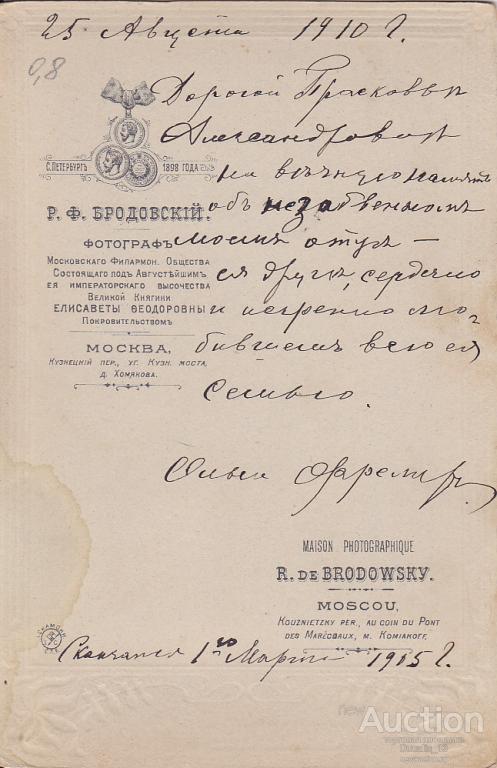 25 Августа 1910 г.
0,8
Дорогой Прасковьи
Александровнѣ
на вѣчную память
объ незабвенномъ
моемъ отцѣ —
ея другѣ, сердечно
и искренно лю-
бившемъ всю ея
семью.
Ольга
С.ПЕТЕРБУРГЪ 1898 ГОДА
Р. Ф. БРОДОВСКІЙ.
ФОТОГРАФЪ
МОСКОВСКАГО ФИЛАРМОН. ОБЩЕСТВА
СОСТОЯЩАГО ПОДЪ АВГУСТѢЙШИМЪ
ЕЯ ИМПЕРАТОРСКАГО ВЫСОЧЕСТВА
ВЕЛИКОЙ КНЯГИНИ
ЕЛИСАВЕТЫ ѲЕОДОРОВНЫ
ПОКРОВИТЕЛЬСТВОМЪ
МОСКВА,
КУЗНЕЦКІЙ ПЕР., УГ. КУЗН. МОСТА,
Д. ХОМЯКОВА.
MAISON PHOTOGRAPHIQUE
R. DE BRODOWSKY.
MOSCOU,
KOUZNIETZKY PER., AU COIN DU PONT
DES MARÉCHAUX, M. KOMIAKOFF.
Скончался 1го Марта 1905 г.
Auction